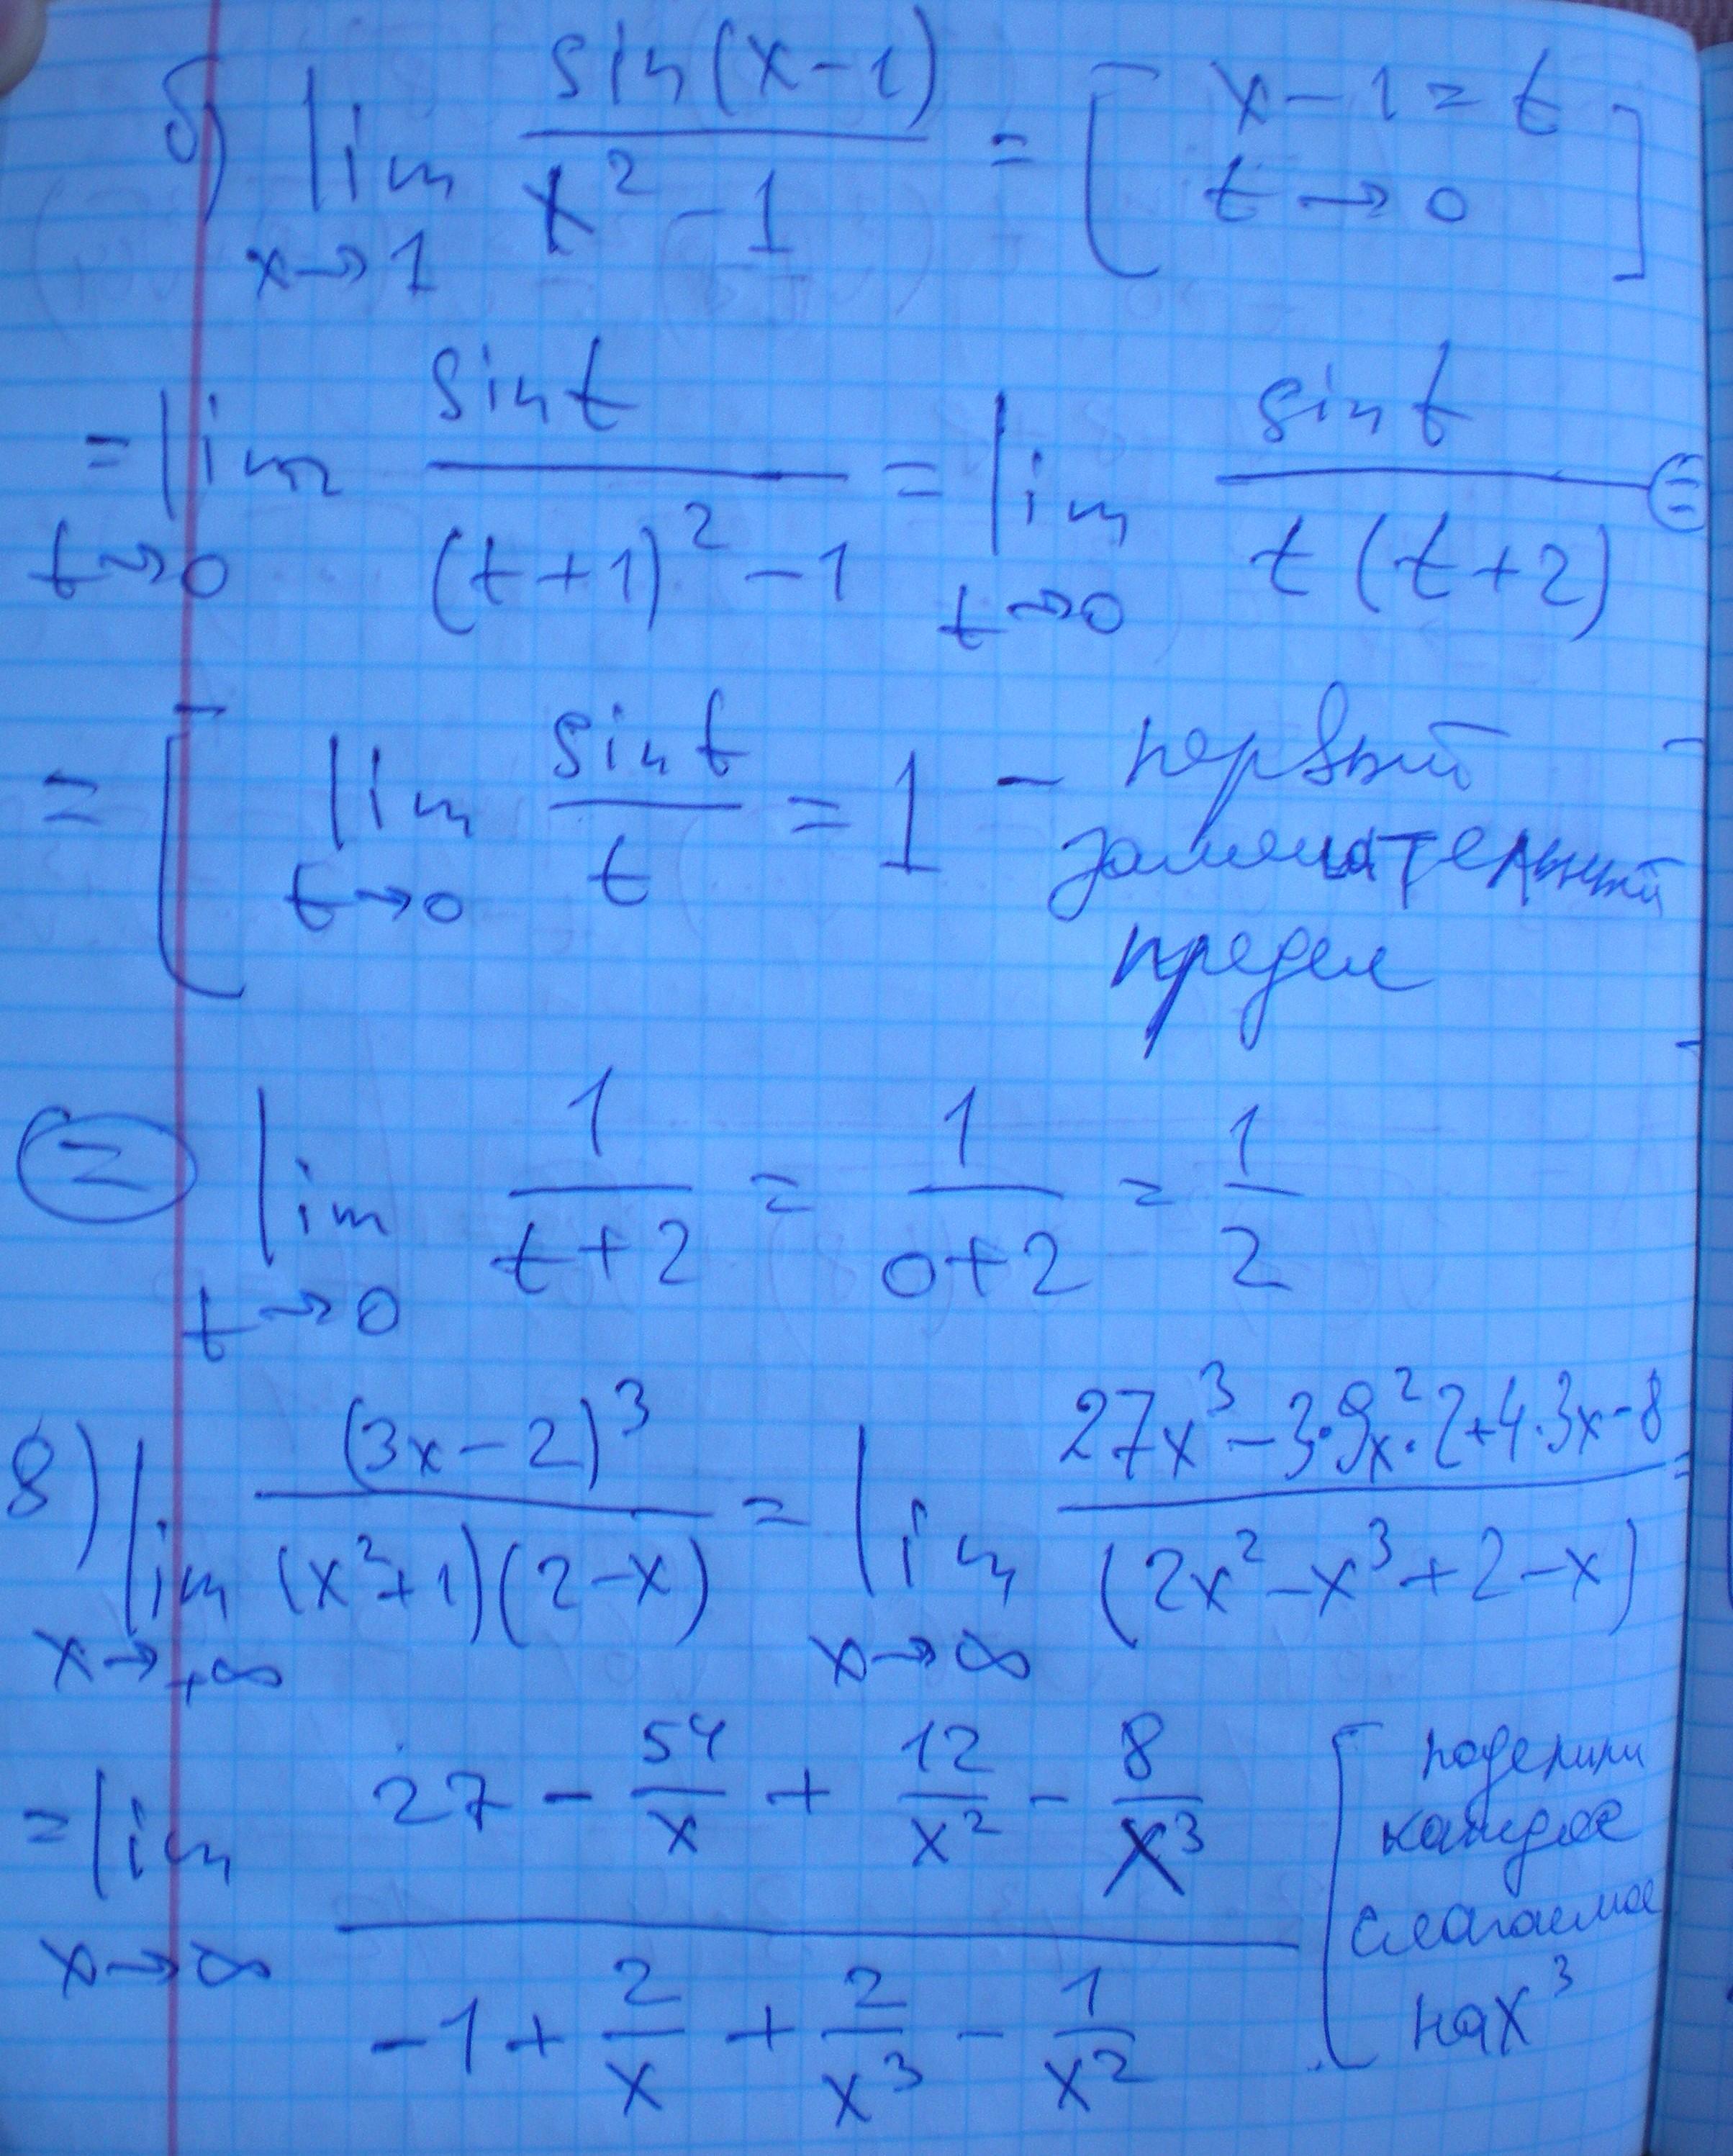 б) lim x→1 sin(x-1) / x² - 1 = [ x - 1 = t t → 0 ]
= lim t→0 sin t / (t+1)² - 1 = lim t→0 sin t / t(t+2) =
= [ lim t→0 sin t / t = 1 - первый
замечательный
предел ]
= lim t→0 1 / t+2 = 1 / 0+2 = 1 / 2
8) lim x→+∞ (3x-2)³ / (x²+1)(2-x) = lim x→∞ 27x³ - 3·9x²·2 + 4·3x - 8 / (2x² - x³ + 2 - x) =
= lim x→∞ 27 - 54/x + 12/x² - 8/x³ / -1 + 2/x + 2/x³ - 1/x²
[ поделили
каждое
слагаемое
на x³